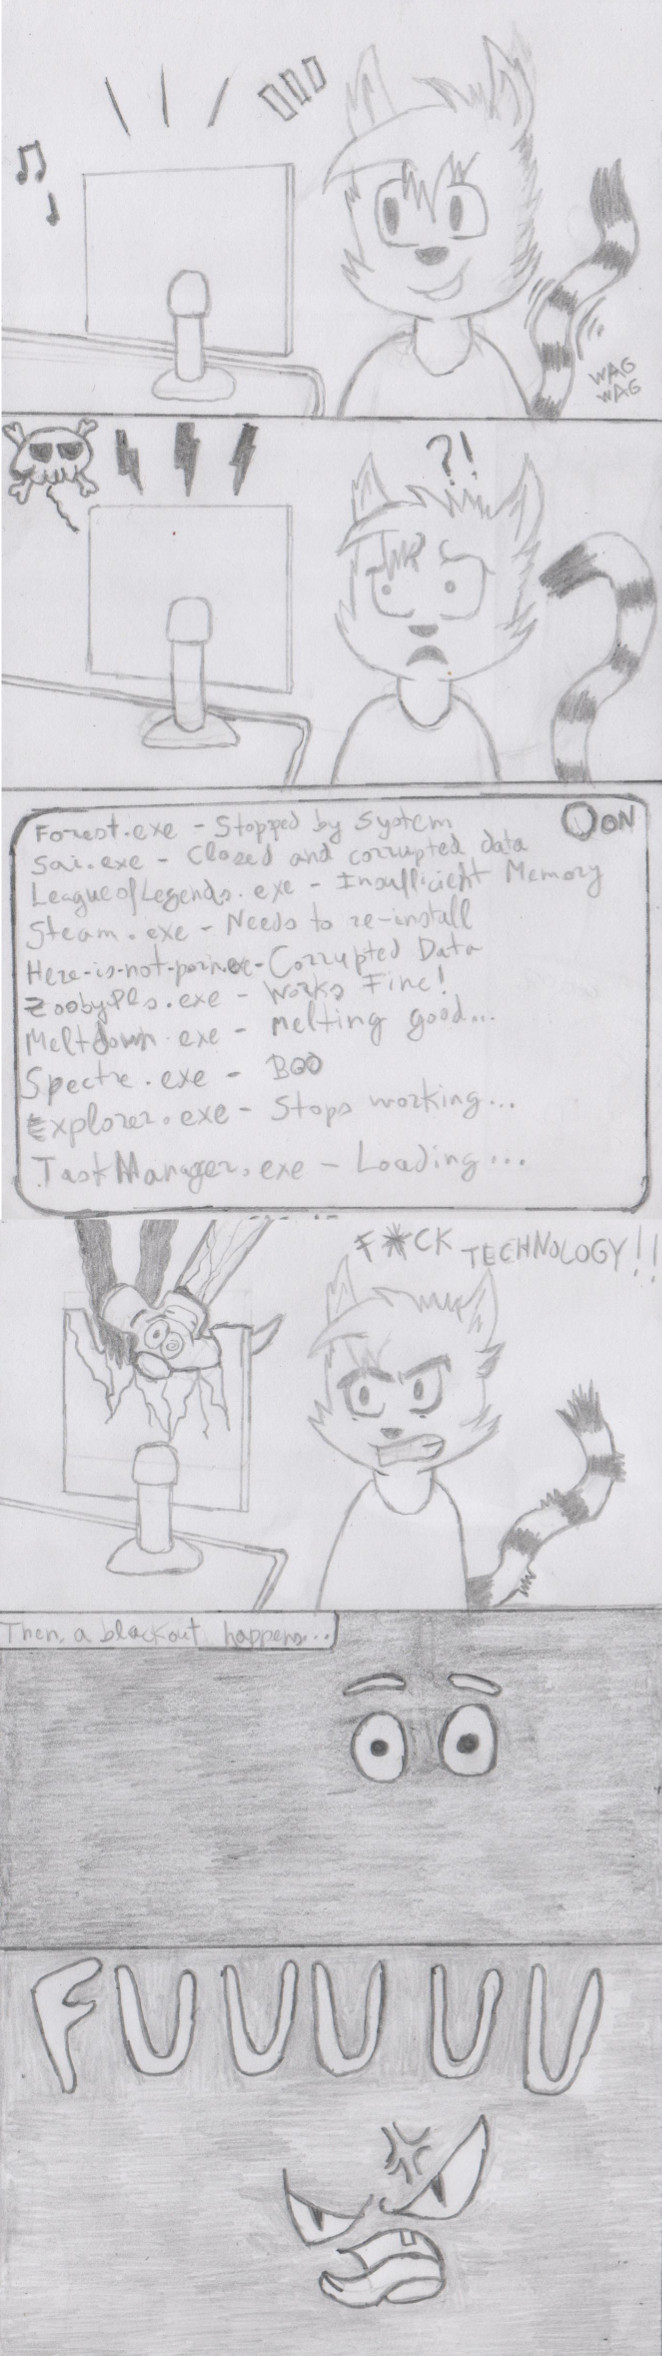 WAG
WAG
?!
ON
Forest.exe - Stopped by System
Sai.exe - Closed and corrupted data
LeagueofLegends.exe - Insufficient Memory
Steam.exe - Needs to re-install
Here-is-not-porn.exe - Corrupted Data
ZoobyPls.exe - Works Fine!
Meltdown.exe - Melting good...
Spectre.exe - BOO
Explorer.exe - Stops working...
TaskManager.exe - Loading...
F*CK TECHNOLOGY!!
Then, a blackout happens...
FUUUUU